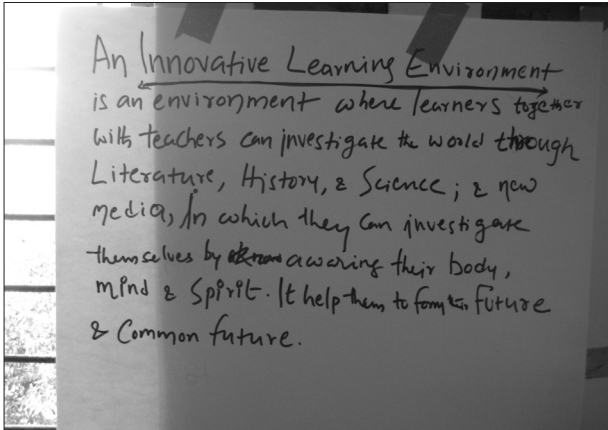 An Innovative Learning Environment
is an environment where learners together
with teachers can investigate the world through
Literature, History, & Science; & new
media, in which they can investigate
themselves by awaring their body,
mind & Spirit. It help them to form their future
& Common future.